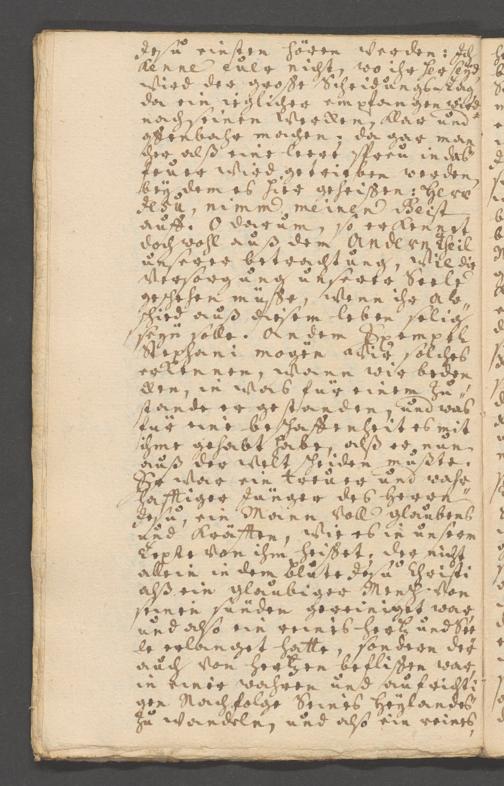 Jesu einsten hören werden: Ich
kenne eure nicht, wo ihr her seyd
wird der große Scheidungs-Tag
da ein ieglicher empfangen wird
nach seinen Wercken, klar und
offenbahr machen; da gar man
cher alß eine leere spreu in das
feuer wird getrieben werden
bey dem es hier geheißen: Herr
Jesu, nimm meinen Geist
auff. O darum, so erkennet
doch wohl auß dem Andern theil
unserer betrachtung, wie die
Versorgung unserer Seele
geschehen müsse, wenn ihr Ab-
schied auß diesem leben selig
seyn solle. An dem Exempel
Stephani mögen wir solches
erkennen, wann wir beden
cken, in was für einem Zu-
stande er gestanden, und was
für eine beschaffenheit es mit
ihme gehabt habe, alß er nun
auß der welt scheiden mußte.
Er war ein treuer und wahr
hafftiger Jünger des Herrn
Jesu, ein Mann voll glaubens
und Kräfften, wie es in unserm
Texte von ihm heißet, der nicht
allein in dem blute Jesu Christi
alß ein glaubiger Mensch von
seinen sünden gereiniget war
und also ein reines hertz und See
le erlanget hatte, sondern der
auch von hertzen beflißen war
in einer wahren und aufrichti
gen Nachfolge Seines Heylandes
zu wandeln, und also ein reines